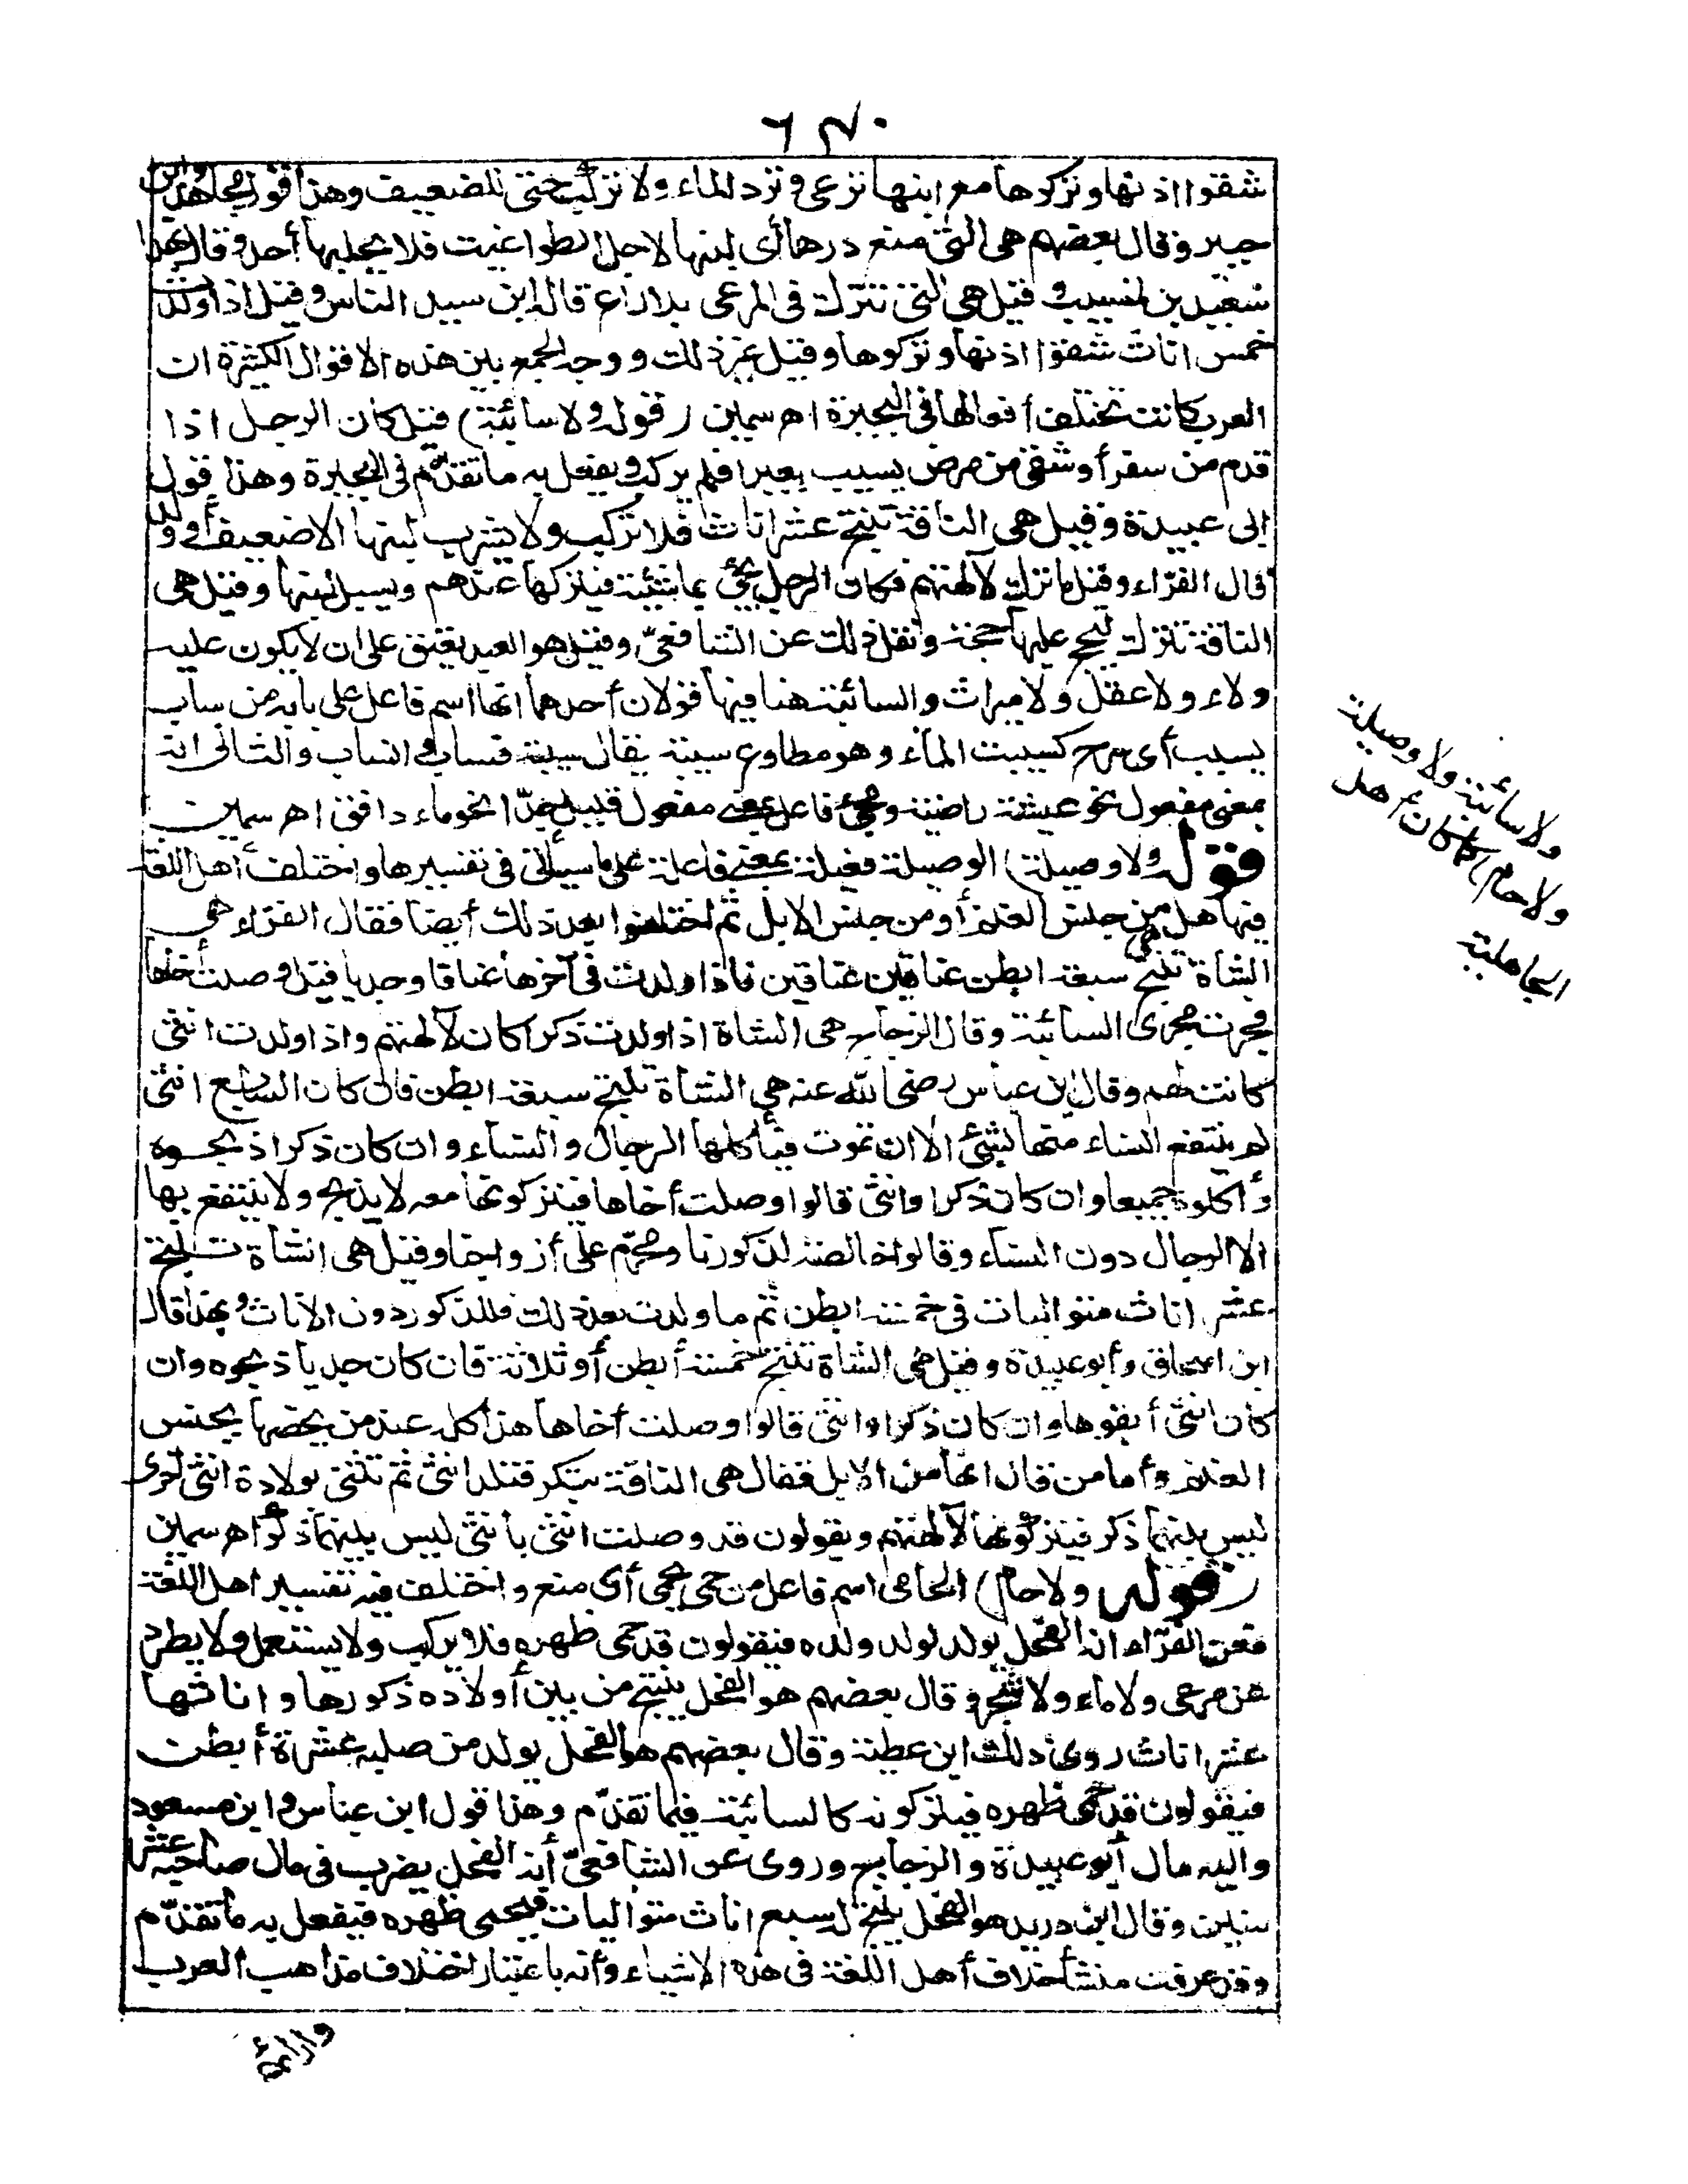 ٦٣٠
شقوا اذنها وتركوها مع ابنها ترعى وترد الماء ولا تركب حتى للضعيف وهذا قول مجاهد وابن
جبير وقال بعضهم هى التى منع درها أى لبنها لاجل الطواغيت فلا يحلبها أحد وقال بهذا
سعيد بن المسيب وقيل هى التى تترك فى المرعى بلا راع قاله ابن سيد الناس وقيل اذا ولدت
خمس اناث شقوا اذنها وتركوها وقيل غير ذلك ووجه الجمع بين هذه الاقوال الكثيرة ان
العرب كانت تختلف أفعالها فى البحيرة اهـ سمين (قوله ولا سائبة) قيل كان الرجل اذا
قدم من سفر أو شفى من مرض يسيب بعيرا فلم يركب ويفعل به ما تقدّم فى البحيرة وهذا قول
ابى عبيدة وقيل هى الناقة تنتج عشر اناث فلا تركب ولا يشرب لبنها الا ضعيف أو ولد
قال الفرّاء وقيل ما ترك لآلهتهم فكان الرجل يجئ بماشيته فيتركها عندهم ويسيل لبنها وقيل هى
الناقة تترك ليحج عليها حجة ونقل ذلك عن الشافعىّ وقيل هو العبد يعتق على ان لا يكون عليه
ولاء ولا عقل ولا ميراث والسائبة هنا فيها قولان أحدهما انها اسم فاعل على بابه من ساب
يسيب أى سرح كسيب الماء وهو مطاوع سيبته يقال سيبته فساب وانساب والثانى انه
بمعنى مفعول نحو عيشة راضية ومجئ فاعل بمعنى مفعول قليل جدّا نحو ماء دافق اهـ سمين
قوله ولا وصيلة) الوصيلة فعيلة بمعنى فاعلة على ما سيأتى فى تفسيرها واختلف أهل اللغة
فيها هل هى من جنس الغنم أو من جنس الابل ثم اختلفوا بعد ذلك أيضا فقال الفرّاء هى
الشاة تنتج سبعة ابطن عناقين عناقين فاذا ولدت فى آخرها عناقا وجديا قيل وصلت أخاها
فجرت مجرى السائبة وقال الزجاج هى الشاة اذا ولدت ذكرا كان لآلهتهم واذا ولدت انثى
كانت لهم وقال ابن عباس رضى الله عنه هى الشاة تنتج سبعة ابطن فان كان السابع انثى
لم ينتفع النساء منها بشئ الا ان تموت فيأكلها الرجال والنساء وان كان ذكرا ذبحوه
وأكلوه جميعا وان كان ذكرا وانثى قالوا وصلت أخاها فيتركونها معه لا يذبح ولا ينتفع بها
الا الرجال دون النساء وقالوا خالصة لذكورنا ومحرّم على أزواجنا وقيل هى الشاة تنتج
عشر اناث متواليات فى خمسة ابطن ثم ما ولدت بعد ذلك فللذكور دون الاناث وبهذا قال
ابن اسحاق وأبو عبيدة وقيل هى الشاة تنتج خمسة أبطن أو ثلاثة فان كان جديا ذبحوه وان
كان انثى أبقوها وان كان ذكرا وانثى قالوا وصلت أخاها هذا كله عند من يخصها بجنس
الغنم وأما من قال انها من الابل فقال هى الناقة تبتكر فتلد انثى ثم تثنى بولادة انثى أخرى
ليس بينهما ذكر فيتركونها لآلهتهم ويقولون قد وصلت انثى بأنثى ليس بينهما ذكر اهـ سمين
(قوله ولا حام) الحامى اسم فاعل من حمى يحمى أى منع واختلف فيه تفسير اهل اللغة
فعن الفرّاء انه الفحل يولد لولد ولده فيقولون قد حمى ظهره فلا يركب ولا يستعمل ولا يطرد
عن مرعى ولا ماء ولا شجر وقال بعضهم هو الفحل ينتج من بين أولاده ذكورها واناثها
عشر اناث روى ذلك ابن عطية وقال بعضهم هو الفحل يولد من صلبه عشرة أبطن
فيقولون قد حمى ظهره فيتركونه كالسائبة فيما تقدّم وهذا قول ابن عباس وابن مسعود
واليه مال أبو عبيدة والزجاج وروى عن الشافعىّ أنه الفحل يضرب فى مال صاحبه عشر
سنين وقال ابن دريد هو الفحل ينتج له سبع اناث متواليات فيحمى ظهره فيفعل به ما تقدّم
وقد عرفت منشأ خلاف أهل اللغة فى هذه الاشياء وأنه باعتبار اختلاف مذاهب العرب
ولا سائبة ولا وصيلة
ولا حام) كما كان أهل
الجاهلية